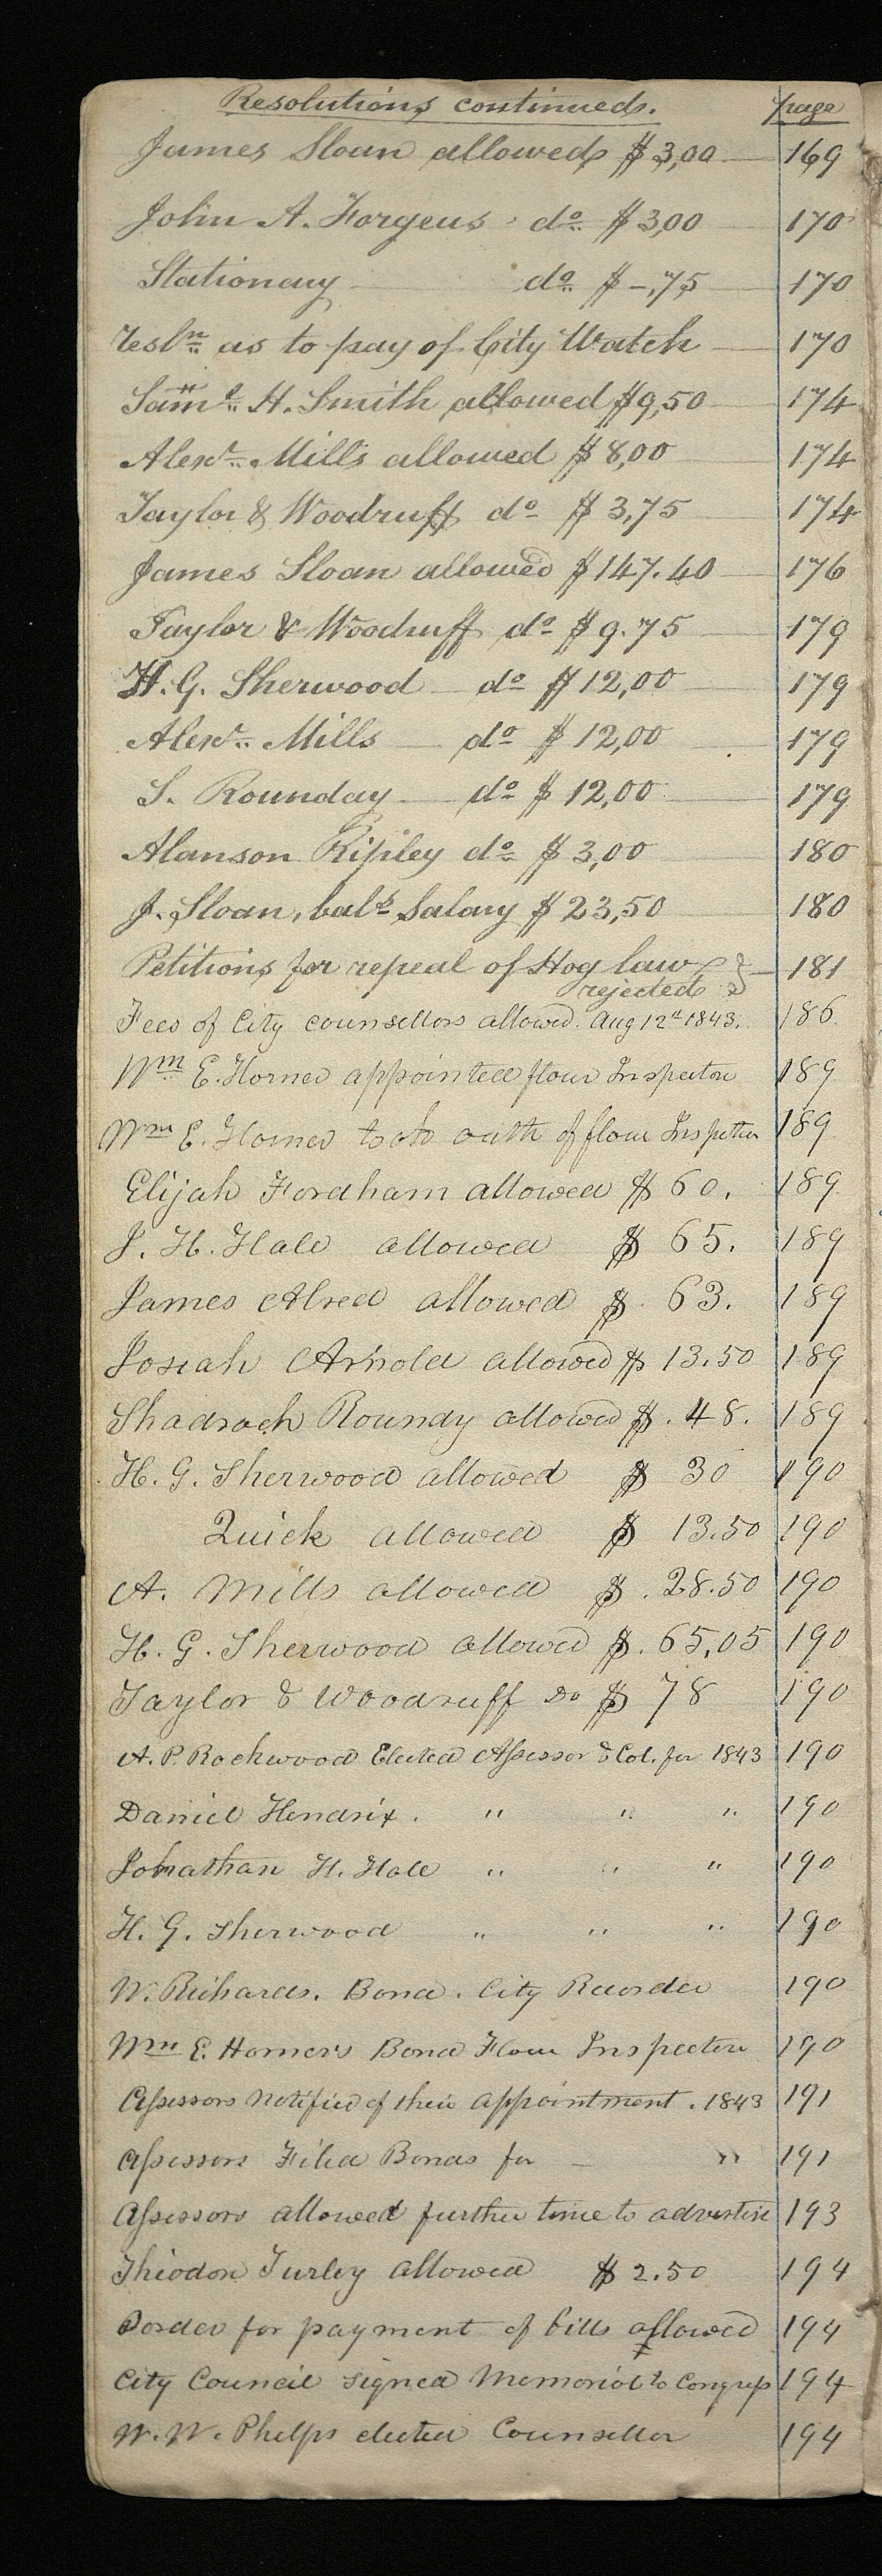 Resolutions continued. page
James Sloan allowed $3,00 169
John A. Forgeus do $3,00 170
Stationery do $-,75 170
resln as to pay of City Watch 170
Saml. H. Smith allowed $9,50 174
Alexr. Mills allowed $8,00 174
Taylor & Woodruff do $3,75 174
James Sloan allowed $147.40 176
Taylor & Woodruff do $9.75 179
H. G. Sherwood do $12,00 179
Alexr. Mills do $12,00 179
S. Rounday do $12,00 179
Alanson Ripley do $3,00 180
J. Sloan, bals Salary $23,50 180
Petitions for repeal of Hog law 181
rejected
Fees of City counsellors allowed. Aug 12th 1843. 186
Wm E. Horner appointed flour Inspector 189
Wm E. Horner took oath of flour Inspector 189
Elijah Fordham allowed $60. 189
J. H. Hale allowed $65. 189
James Alred allowed $.63. 189
Josiah Arnold allowed $13.50 189
Shadrach Roundy allowed $.48. 189
H. G. Sherwood allowed $30 190
Quick allowed $13.50 190
A. Mills allowed $.28.50 190
H. G. Sherwood allowed $.65,05 190
Taylor & Woodruff Do $78 190
A. P. Rockwood Elected Assessor & Col. for 1843 190
Daniel Hendrix. " " " 190
Johnathan H. Hale " " " 190
H. G. Sherwood " " " 190
W. Richards. Bond. City Recorder 190
Wm E. Horner's Bond Flour Inspector 190
Assessors Notified of their appointment. 1843 191
Assessors Filed Bonds for — " 191
Assessors allowed further time to advertise 193
Theodore Turley allowed $2.50 194
order for payment of bills allowed 194
City Council signed Memorial to Congress 194
W. W. Phelps elected Counsellor 194